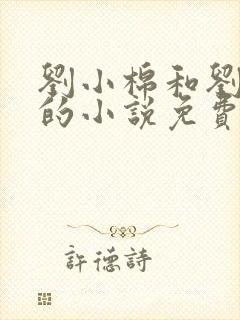 劉小棉和劉
的小說免費
許德詩